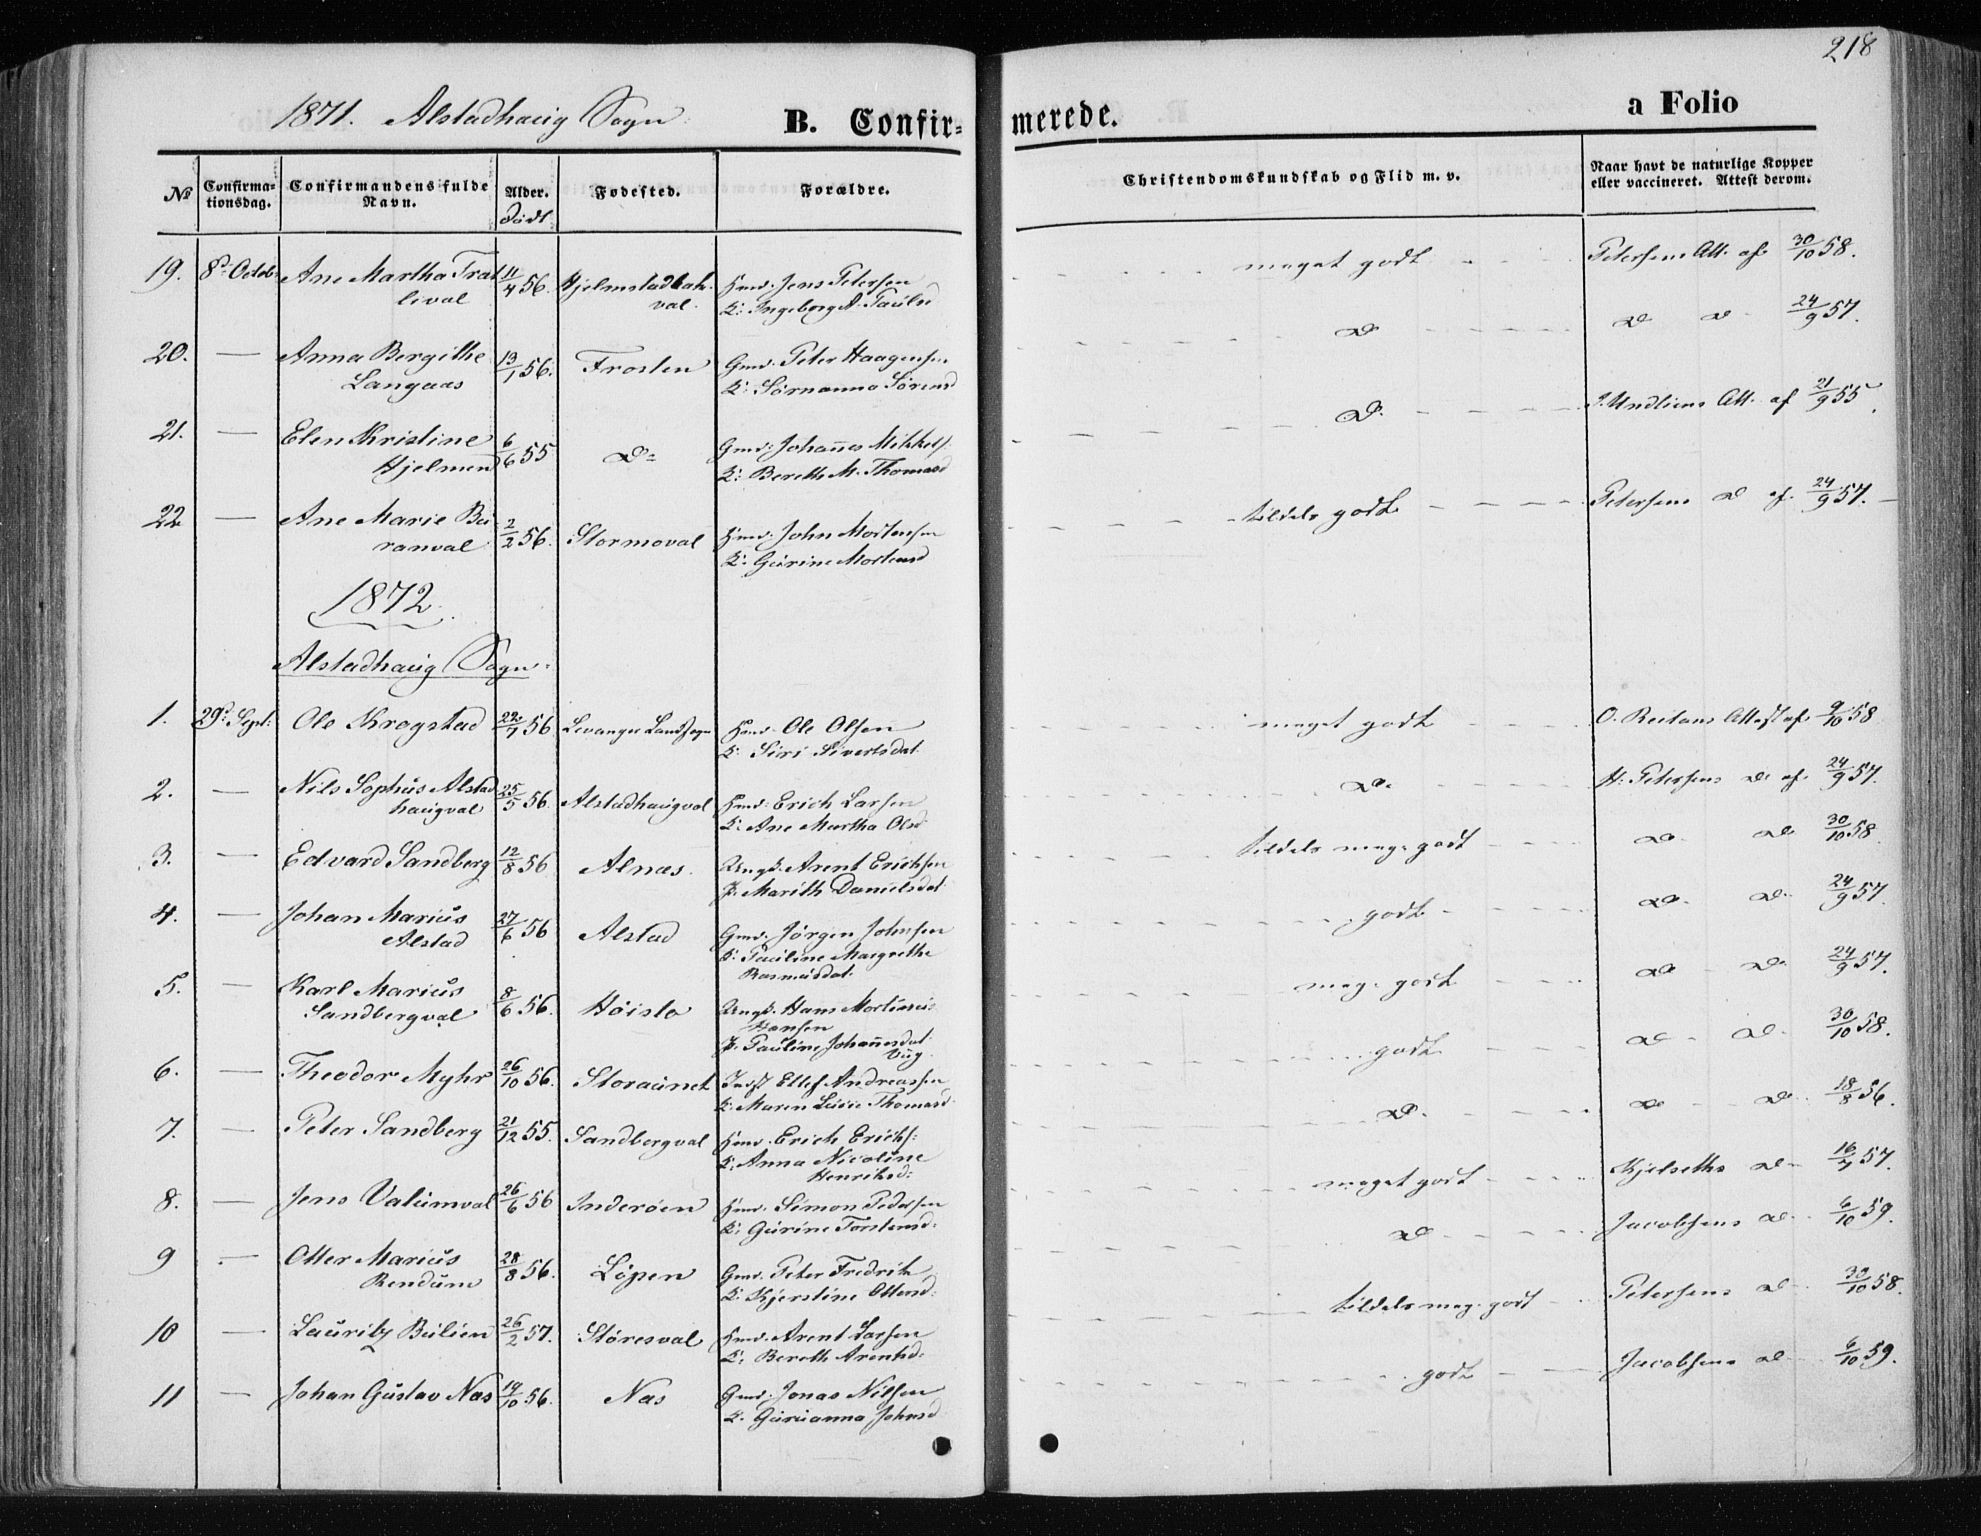 218
1871. Alstadhaug Sogn
B. Confirmerede.
a Folio
No
Confirmationsdag.
Confirmandens fulde Navn.
Alder.
Født
Fødested.
Forældre.
Christendomskundskab og Flid m. v.
Naar havt de naturlige Kopper
eller vaccineret. Attest derom.
19. 8de Octob: Ane Martha 11/4 56. Hmd. Jens Petersen meget godt Petersens Att. af 30/10 58.
val. K: Ingeborg A. Paulsd
20. — Anna Bergithe 13/1 56. Frosten Gmd. Peter Haagensen Do Do Do 24/9 57.
Langaas K: Sørnanna Sørensd
21. — Elen Kristine 6/6 55 Do Gmd: Johanes Mikkels. Do Undliens Att. af 21/9 55
Hjelmen K: Bereth M. Thomasd
22 — Ane Marie Bu 2/2 56. Stormoval Hmd. John Mortensen tildels godt Petersens Do af 24/9 57.
ranval K: Gurine Mortensd
1872.
Alstadhaug Sogn.
1. 29de Sept: Ole Krogstad 22/7 56 Levanger Landsogn Hmd. Ole Olsen meget godt O. Reitans Attest af 9/10 58
K. Siri Sivertsdat.
2. — Nils Sophus Alstad 25/5 56 Alstadhaugval Hmd. Erich Larsen Do H. Petersens Do af 24/9 57.
haugval K: Ane Martha Olsd
3. — Edvard Sandberg 12/8 56 Alnæs. Ungk. Arent Erichsen tildels meg. godt Do Do 30/10 58
P. Marith Danielsdat
4. — Johan Marius 27/6 56 Alstad Gmd. Jørgen Johnsen godt Do Do 24/9 57.
Alstad K: Pauline Margrethe
Rasmusdat.
5. — Karl Marius 8/6 56. Høislo Ungk. Hans Mortinus meg. godt Do Do 24/9 57.
Sandbergval Hansen
P. Pauline Johannesdat
6. — Theodor Myhr 26/10 56. Storaunet Indst Ellef Andreassen godt Do Do 30/10 58.
K. Maren Lovise Thomasd.
7. — Peter Sandberg 21/12 55. Sandbergval Hmd. Erich Erichs: Do Do Do 18/8 56.
K. Anna Nicoline
Henriksd:
8. — Jens Valumval 26/6 56 Inderøen Hmd. Simon Pedersen meget godt Kjelseths Do 16/7 57.
K. Gurine Torstensd:
9 — Otter Marius 28/8 56. Løpen Gmd. Peter Fredrik Do Jacobsens Do 6/10 59.
Rendum K. Kjerstine Ottersd:
10 — Lauritz Bulien 26/2 57. Støresval Hmd. Arent Larsen tildels meg. godt Petersens Do 30/10 58.
K. Bereth Arentsd:
11 — Johan Gustav Nas 19/10 56. Nas Gmd. Jonas Nilsen godt Jacobsens Do 6/10 59.
K. Guruanna Johnsd